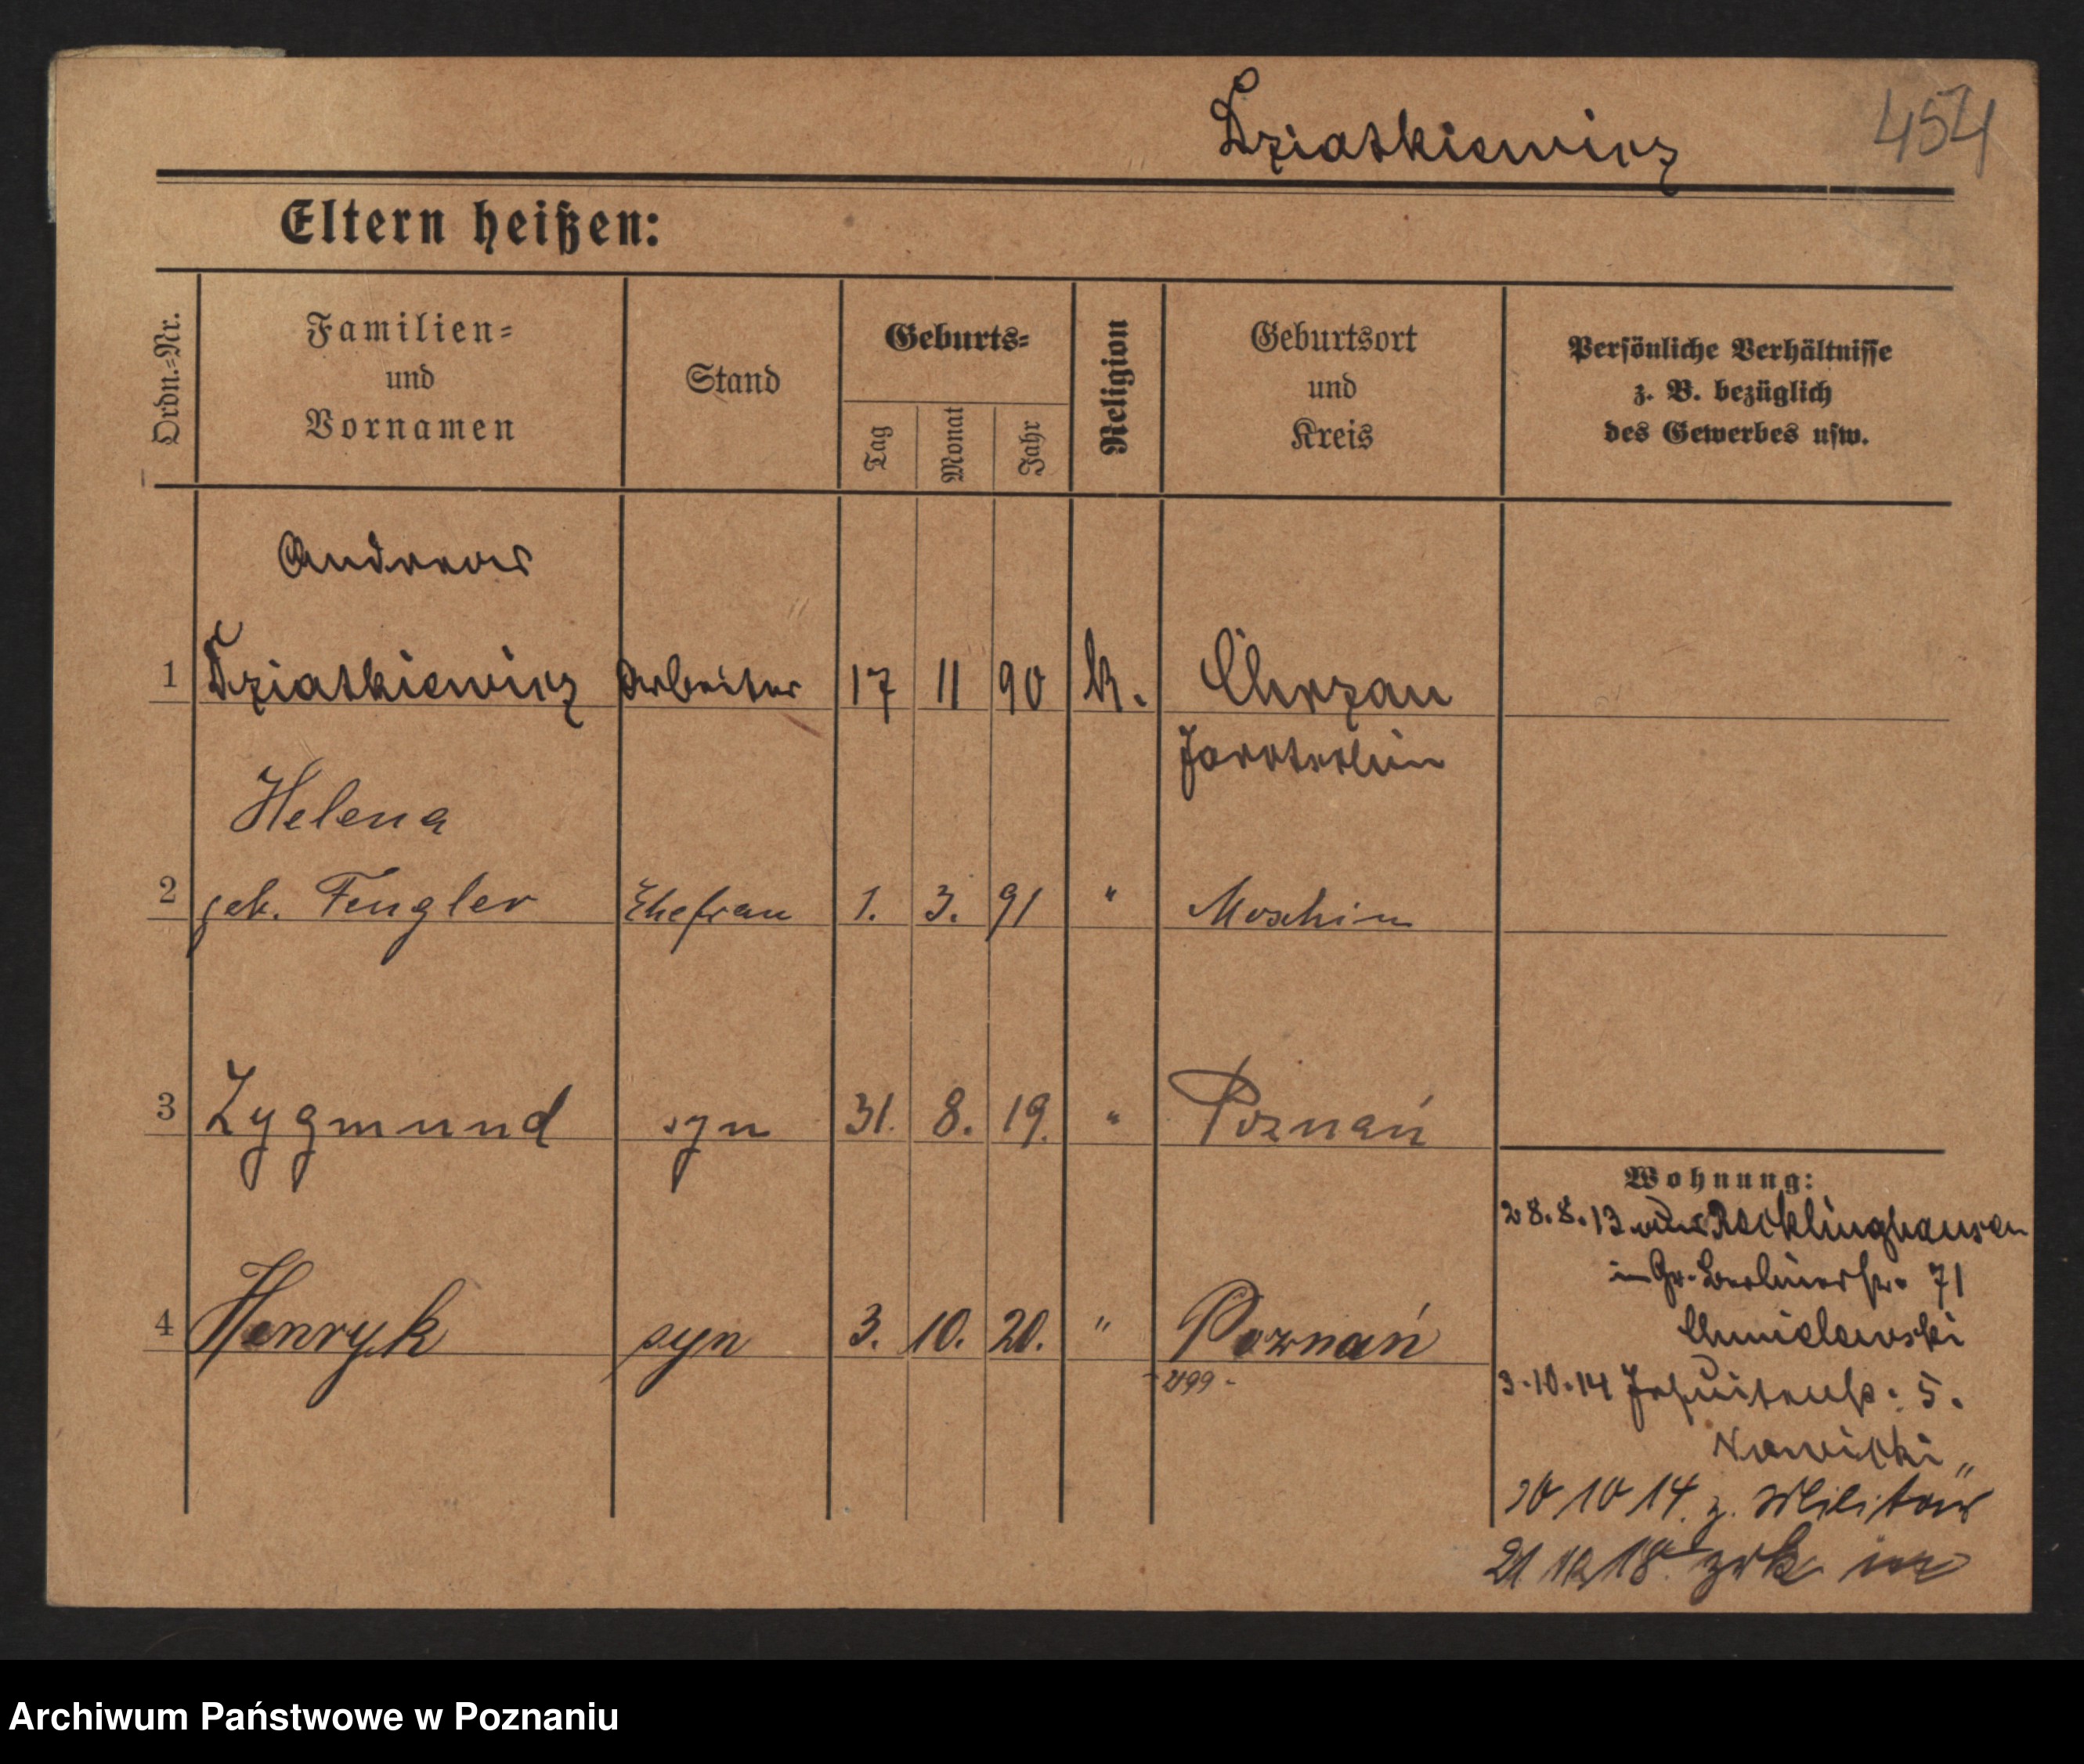 Dziatkiewicz
454
Eltern heißen:
Ordn.-Nr.
Familien-
und
Vornamen
Stand
Geburts-
Tag
Monat
Jahr
Religion
Geburtsort
und
Kreis
Persönliche Verhältnisse
z. B. bezüglich
des Gewerbes usw.
Andreas
1 Dziatkiewicz Arbeiter 17 11 90 k. Chrzan
Jarotschin
Helena
2 geb. Fengler Ehefrau 1. 3. 91 " Moschin
3 Zygmund syn 31. 8. 19. " Poznań
Wohnung:
28.8.13 Recklinghausen
in Gr. Berlinerstr. 71
Chmielewski
4 Henryk syn 3. 10. 20. " Poznań
3.10.14 Jesuitenstr. 5.
Nowicki
10 14. z. Militär
18. zrk
Archiwum Państwowe w Poznaniu